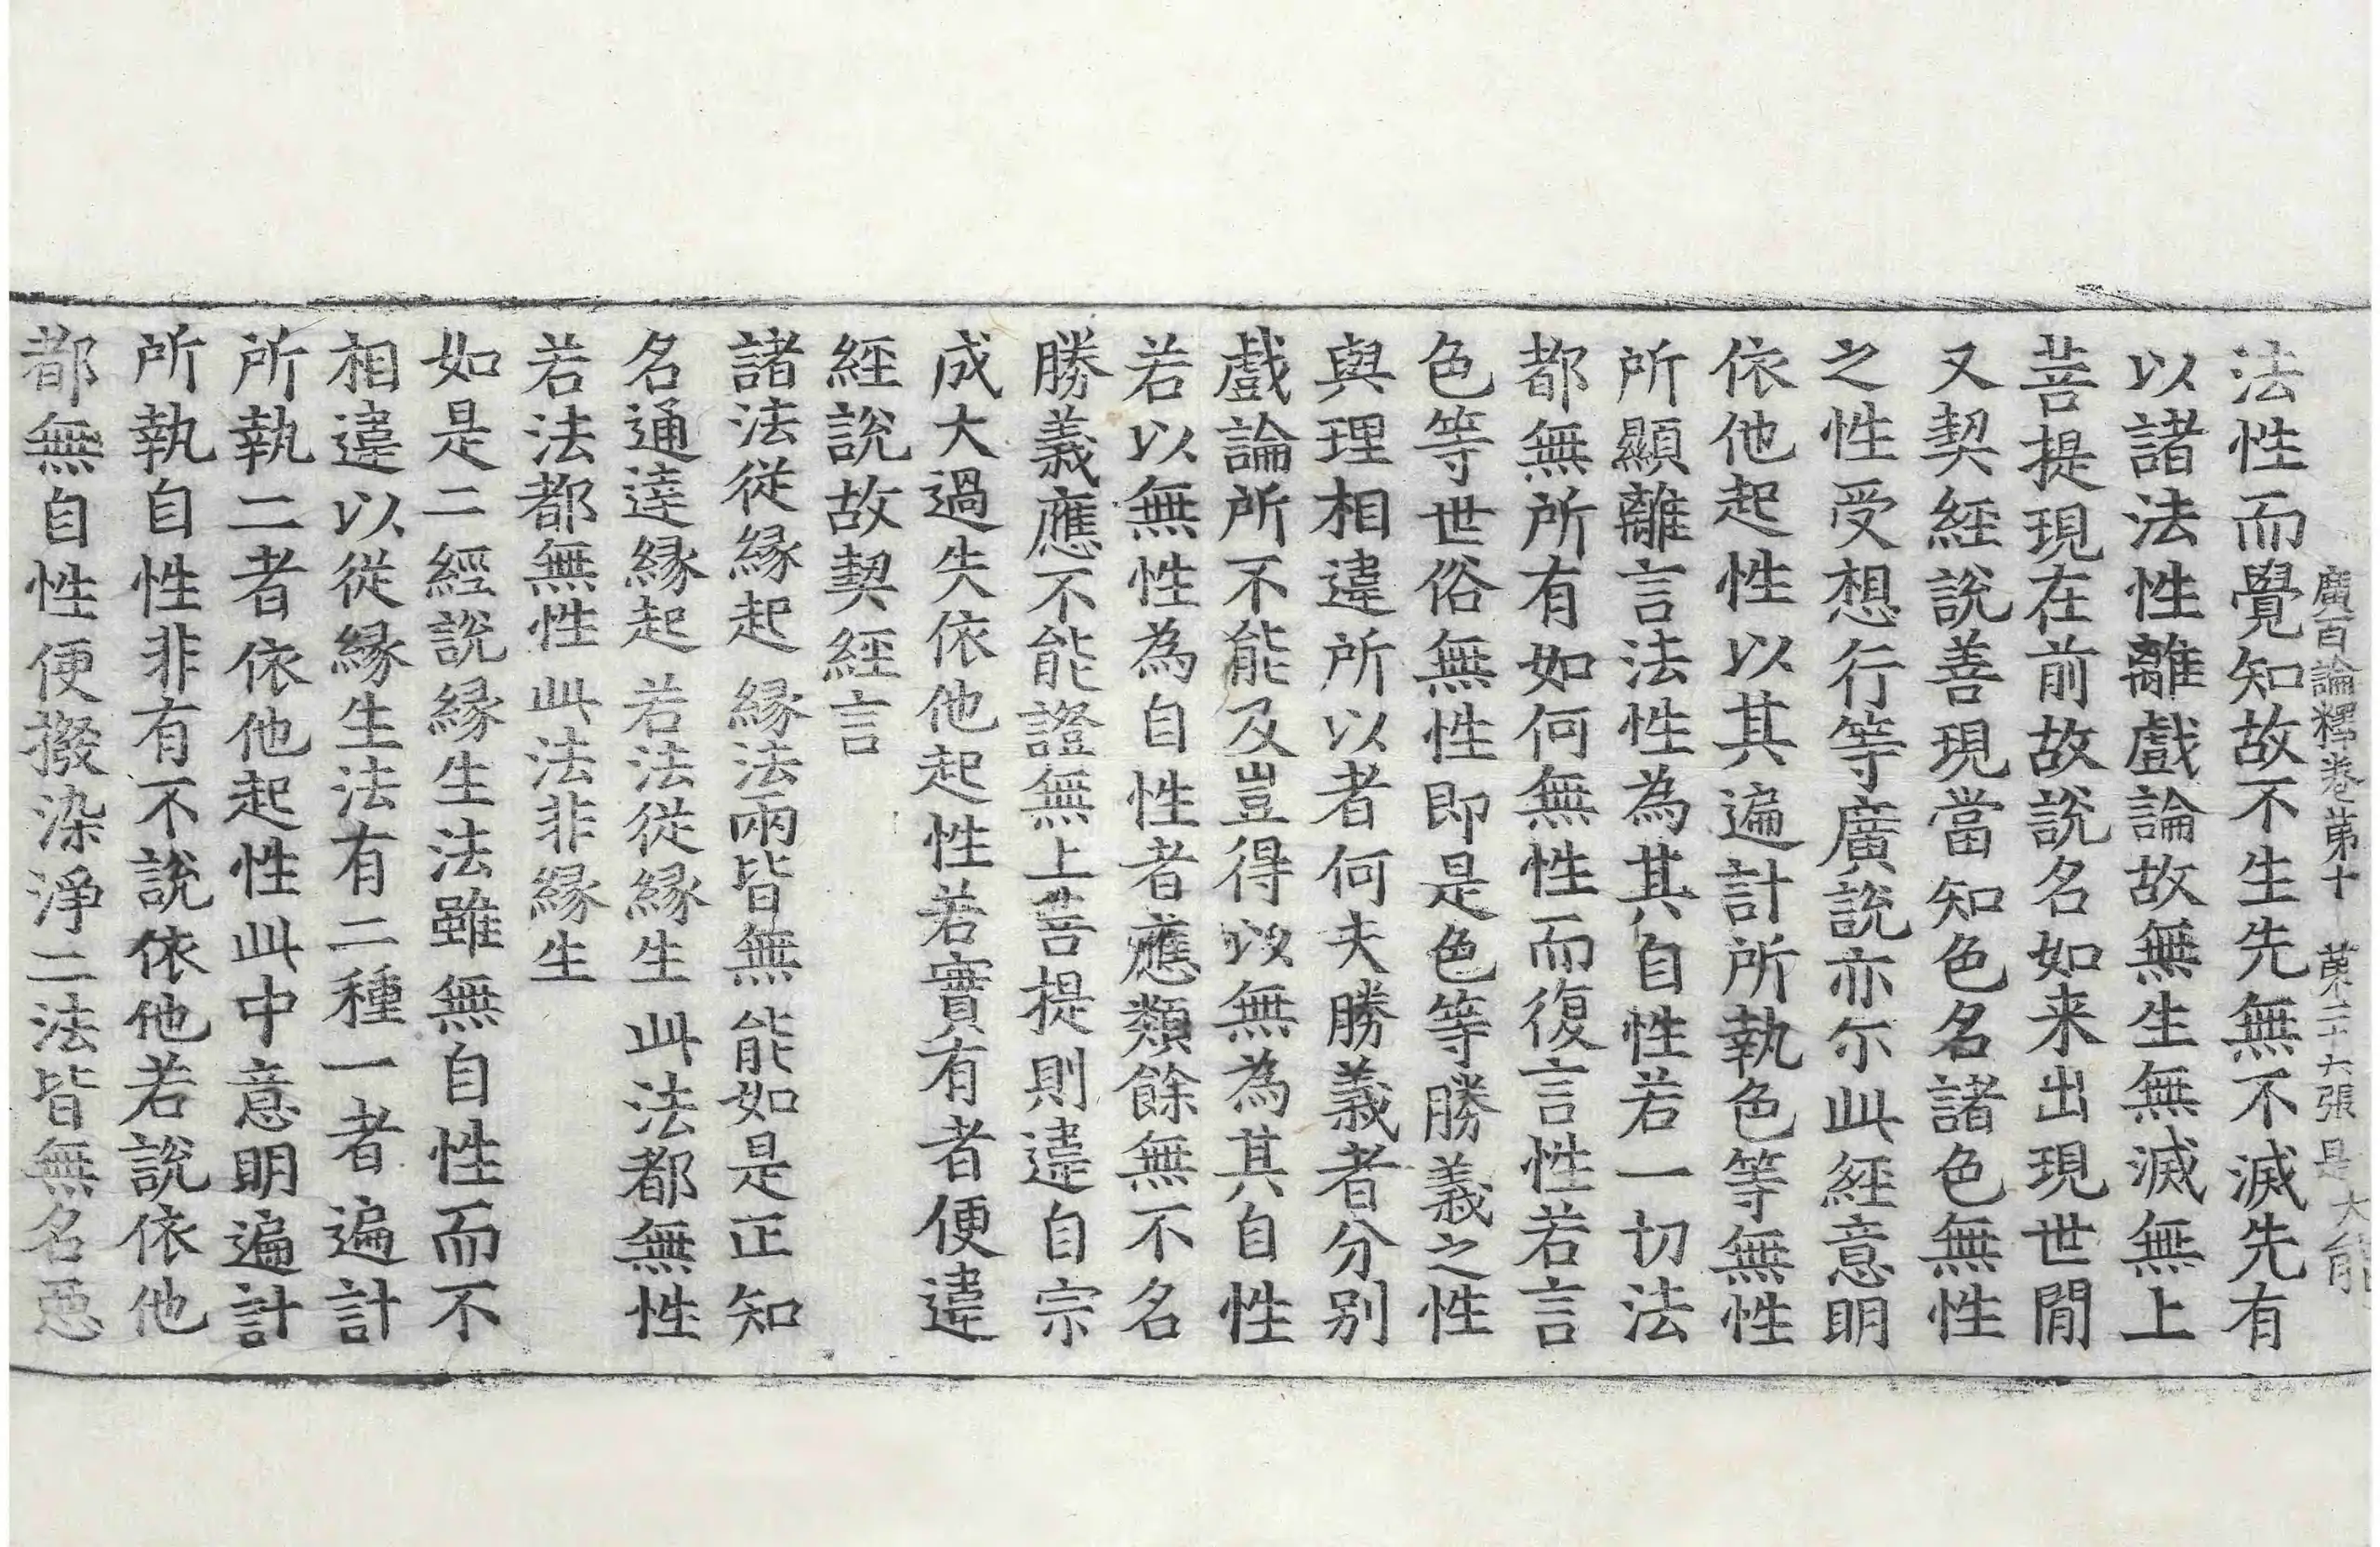 廣百論釋卷第十 第二十六張 是 大能
法性而覺知故不生先無不滅先有
以諸法性離戲論故無生無滅無上
菩提現在前故說名如来出現世閒
又契經說善現當知色名諸色無性
之性受想行等廣說亦尒此經意明
依他起性以其遍計所執色等無性
所顯離言法性為其自性若一切法
都無所有如何無性而復言性若言
色等世俗無性即是色等勝義之性
與理相違所以者何夫勝義者分别
戲論所不能及豈得以無為其自性
若以無性為自性者應類餘無不名
勝義應不能證無上菩提則違自宗
成大過失依他起性若實有者便違
經說故契經言
諸法從緣起 緣法兩皆無 能如是正知
名通達緣起 若法從緣生 此法都無性
若法都無性 此法非緣生
如是二經說緣生法雖無自性而不
相違以從緣生法有二種一者遍計
所執二者依他起性此中意明遍計
所執自性非有不說依他若說依他
都無自性便撥染淨二法皆無名惡